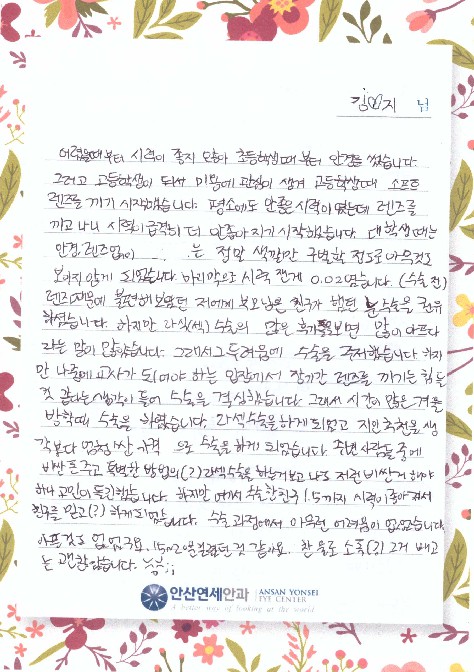 김 지 님
어렸을때부터 시력이 좋지 못하여 초등학생때 부터 안경을 썼습니다.
그러고 고등학생이 되서 미용에 관심이 생겨 고등학생때 소프트
렌즈를 끼기 시작했습니다. 평소에도 안좋은 시력이였는데 렌즈를
끼고 나니 시력이 급격히 더 안좋아지기 시작했습니다. 대학생때는
안경, 렌즈없이 는 정말 색깔만 구별할 정도로 아무것도
보이지 않게 되었습니다. 마지막으로 시력 잰게 0.02였습니다. (수술 전)
렌즈때문에 불편해 보였던 저에게 부모님은 친구가 했던 눈수술을 권유
하셨습니다. 하지만 라식(섹) 수술의 많은 후기들보면 많이 아프다
라는 말이 많았습니다. 그래서 그 두려움에 수술을 주저했습니다. 하지
만 나중에 교사가 되어야 하는 입장에서 장기간 렌즈를 끼기는 힘들
것 같다는 생각이 들어 수술을 결심했습니다. 그래서 시간이 많은 겨울
방학때 수술을 하였습니다. 라섹수술을하게 되었고 지인 추천을 생
각보다 엄청 싼 가격 으로 수술을 하게 되었습니다. 주변 사람들 중에
비싼 돈 주고 특별한 방법의(?) 라섹수술을 하는걸 보고 나도 저런 비싼거 해야
하나 고민이 됐긴했습니다. 하지만 여기서 수술한 친구 1.5까지 시력이 좋아져서
친구를 믿고(?) 하게되었습니다. 수술 과정에서 아무런 어려움이 없었습니다.
아픈것도 없었구요. 15~20분 걸렸던 것 같아요. 찬 물로 소독(?) 그거 빼고
는 괜찮았습니다.
안산연세안과 ANSAN YONSEI
EYE CENTER
A better way of looking at the world